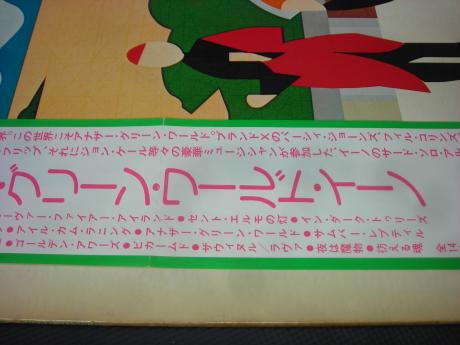 界。この世界こそアナザー・グリーン・ワールド。ブランドXのパーシィ・ジョーンズ、フィル・コリンズ、
フリップ、それにジョン・ケール等々の豪華ミュージシャンが参加した、イーノのサード・ソロ・アル
グリーン・ワールド・イーノ
ーヴァー・ファイアー・アイランド●セント・エルモの灯●イン・ダーク・トゥリーズ
・アイル・カム・ラニング●アナザー・グリーン・ワールド●サムバー・レプティル
●ゴールデン・アワーズ●ビカームド●ザウィヌル／ラヴァ●夜は魔物●彷える魂 全14